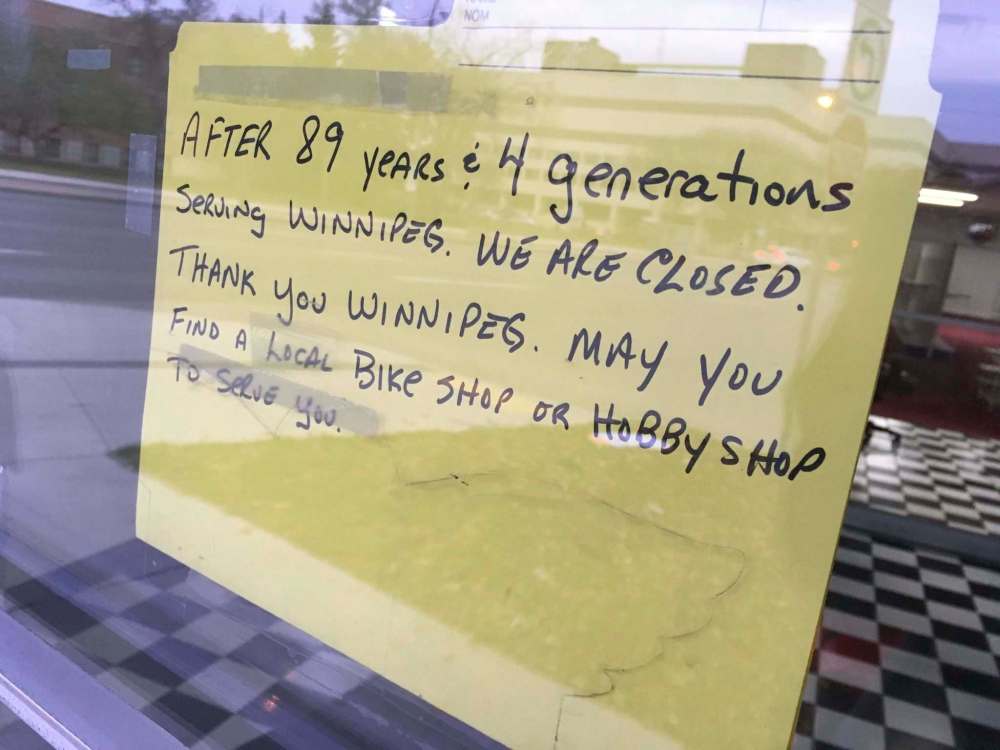 NOM
AFTER 89 years & 4 generations
Serving WINNIPEG. WE ARE CLOSED.
THANK you WINNIPEG. MAY YOU
FIND A LOCAL BIKE SHOP OR HOBBY SHOP
TO SERVE you.